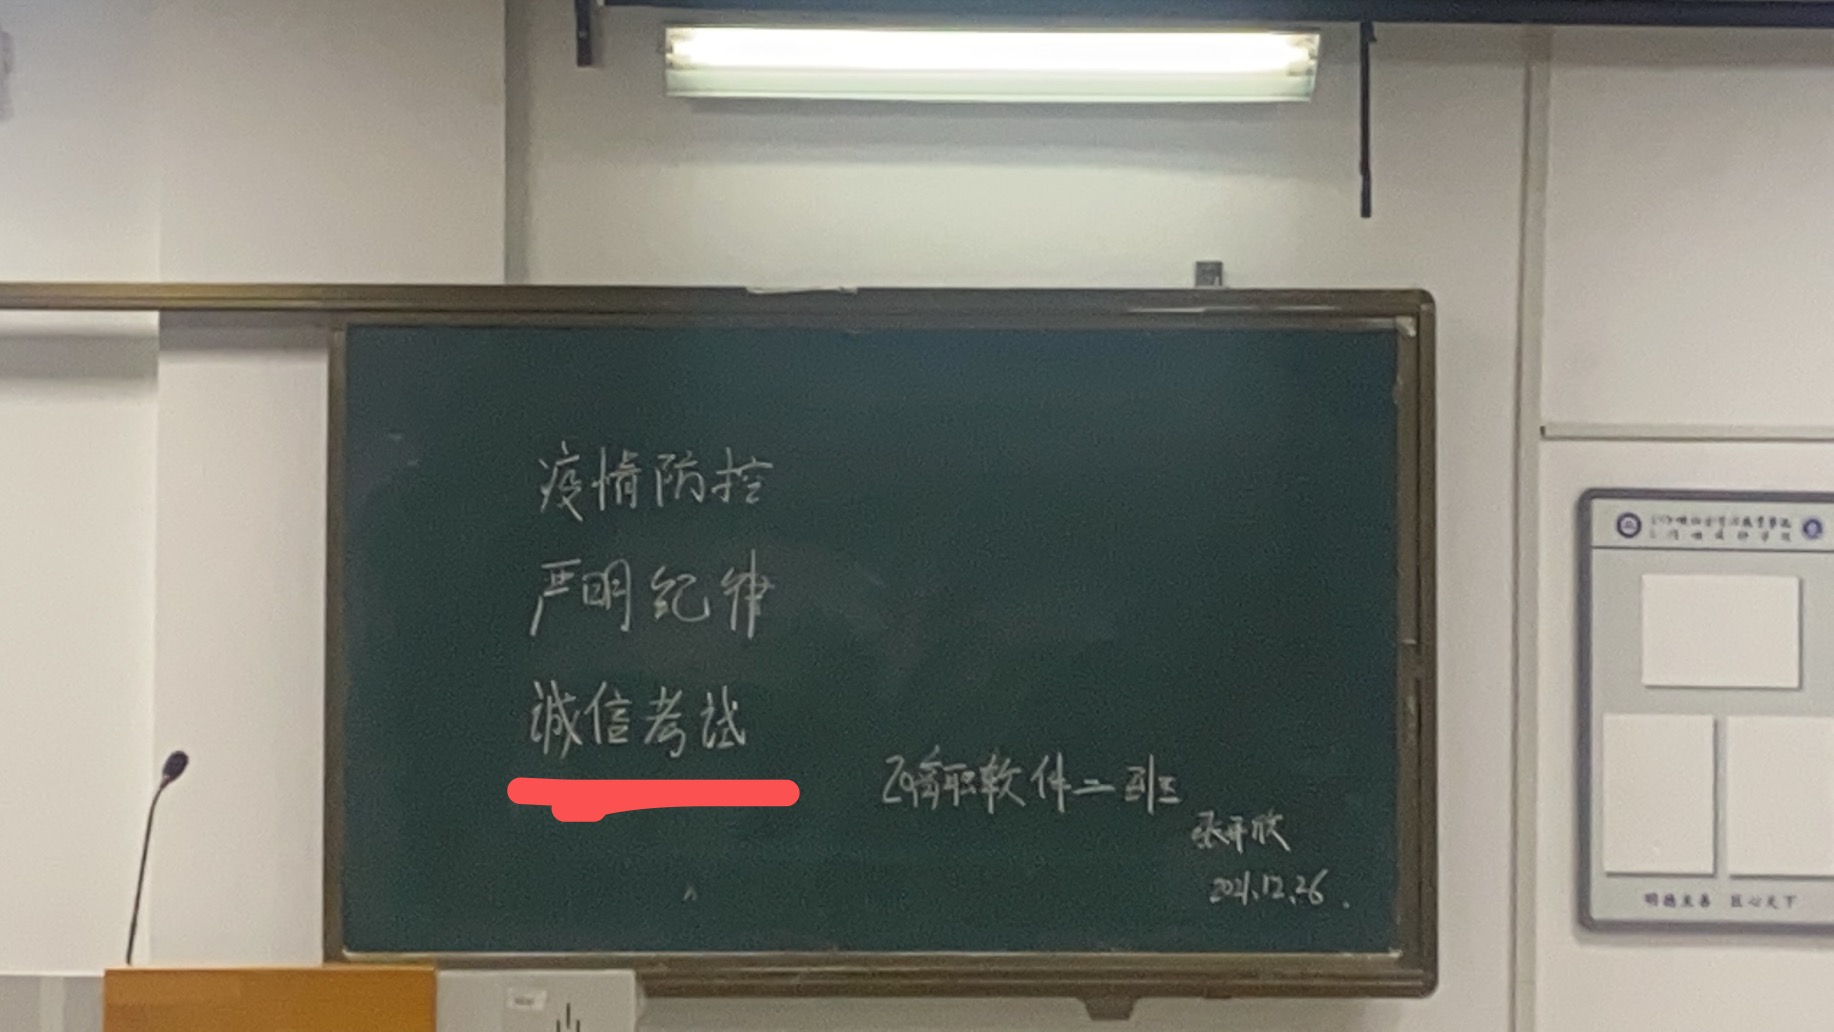 疫情防控
严明纪律
诚信考试
软件二班
张开欣
2021.12.26.
明德至善 匠心天下